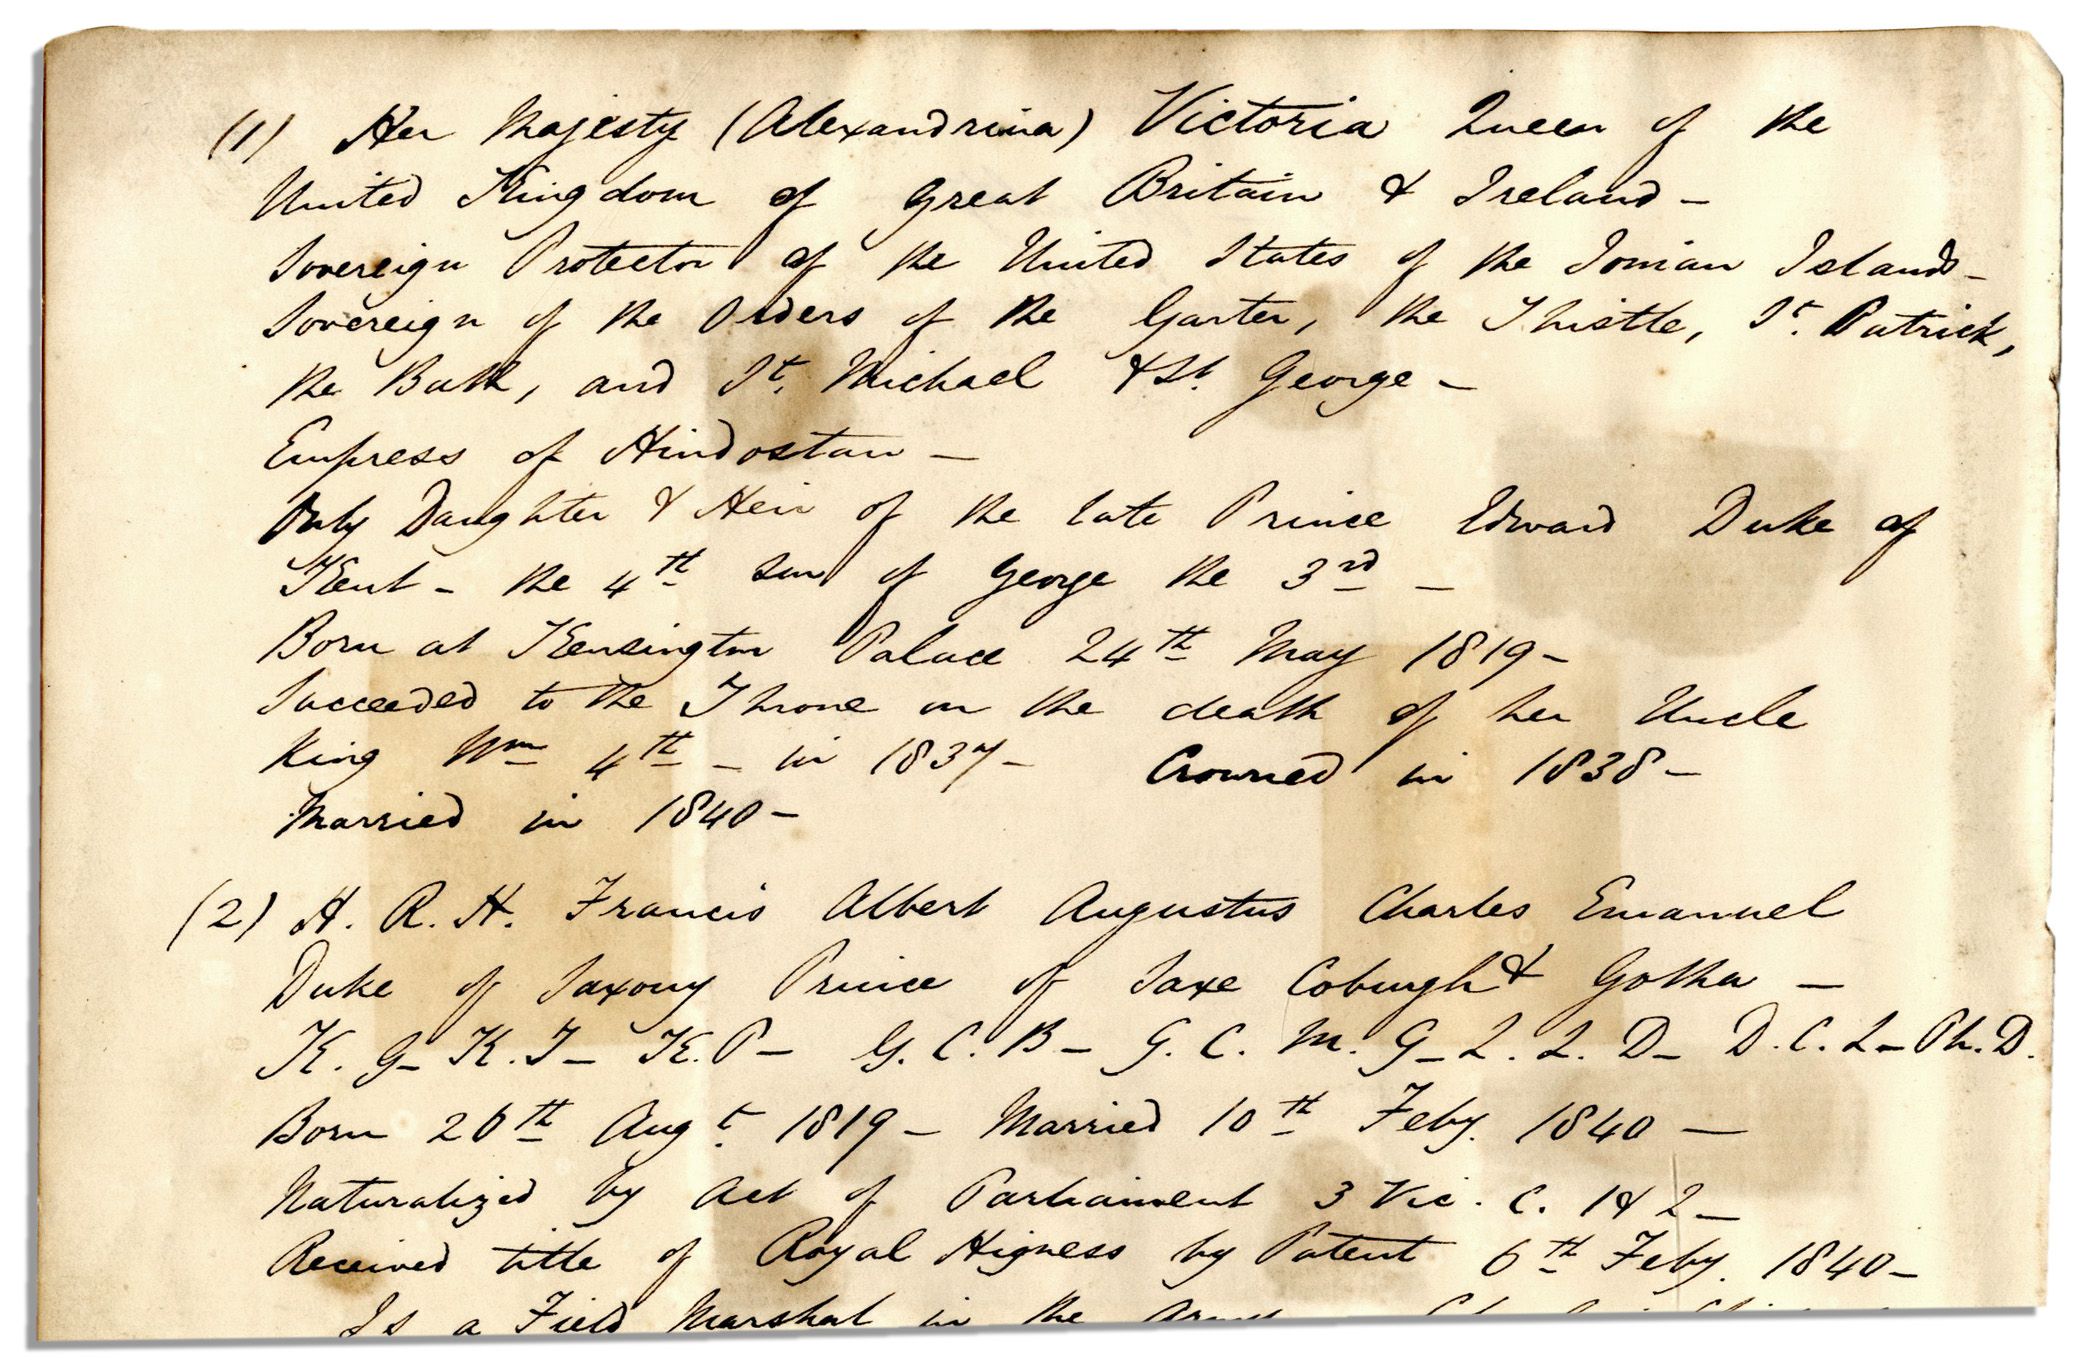 (1) Her Majesty (Alexandrina) Victoria Queen of the
United Kingdom of Great Britain & Ireland –
Sovereign Protector of the United States of the Ionian Islands –
Sovereign of the Orders of the Garter, the Thistle, St. Patrick,
the Bath, and St. Michael & St. George –
Empress of Hindostan –
Only Daughter & Heir of the late Prince Edward Duke of
Kent – the 4th son of George the 3rd –
Born at Kensington Palace 24th May 1819 –
Succeeded to the Throne on the death of her Uncle
King Wm 4th – in 1837 – Crowned in 1838 –
Married in 1840 –
(2) H. R. H. Francis Albert Augustus Charles Emanuel
Duke of Saxony Prince of Saxe Coburgh & Gotha –
K. G – K. T – K. P – G. C. B – G. C. M. G – L. L. D – D. C. L – Ph. D.
Born 26th Augt. 1819 – Married 10th Feby. 1840 –
Naturalized by Act of Parliament 3 Vic. C. 1 & 2 –
Received title of Royal Higness by Patent 6th Feby. 1840 –
Is a Field Marshal in the Army